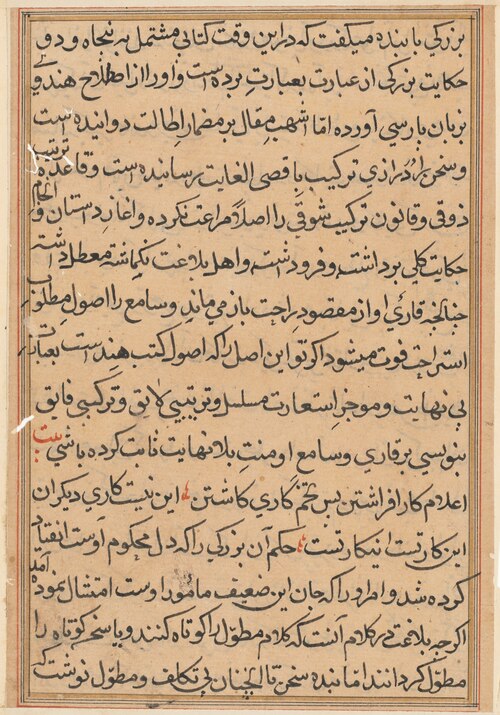 بزرکی با بنده میکفت که درین وقت کتابی مشتمل به پنجاه و دو
حکایت بزرکی از عبارت بعبارت برده است و اورا از اصطلاح هندکی
بزبان پارسی آورده اما اشهب مقال بر مضمار اطالت دوانیده است
و سخن را در درازی ترکیب باقصی الغایت رسانیده است و قاعده ترتیب
ذوقی و قانون ترکیب شوقی را اصلا مراعت نکرده و اغاز داستان و انجام
حکایت کلی برداشته و فرو داشت و اهل بلاغت معطل داشته
چنانچه قاری او از مقصود راحت باز می ماند و سامع را اصول مطلوب
استراحت فوت میشود اکر تو این اصل را که اصول کتب هند است بعبارت
بی نهایت و موجز استعارت مسلسل و ترتیبی لائق و ترکیبی فایق
بنویسی بر قاری و سامع او منت بلا نهایت ثابت کرده باشی بیت
اعلام کار افراشتن پس تخم کاری کاشتن این نیست کاری دیکران
این کار تست این کار تست حکم آن بزرکی را که دل محکوم اوست انقیاد
کرده شد و امر او را که جان این ضعیف مامور اوست امتثال نموده آمد
اکرچه بلاغت در کلام آنست که کلام مطول را کوتاه کنند و یا سخن کوتاه را
مطول کردانند اما بنده سخن تا بی تکلف و مطول نوشت که